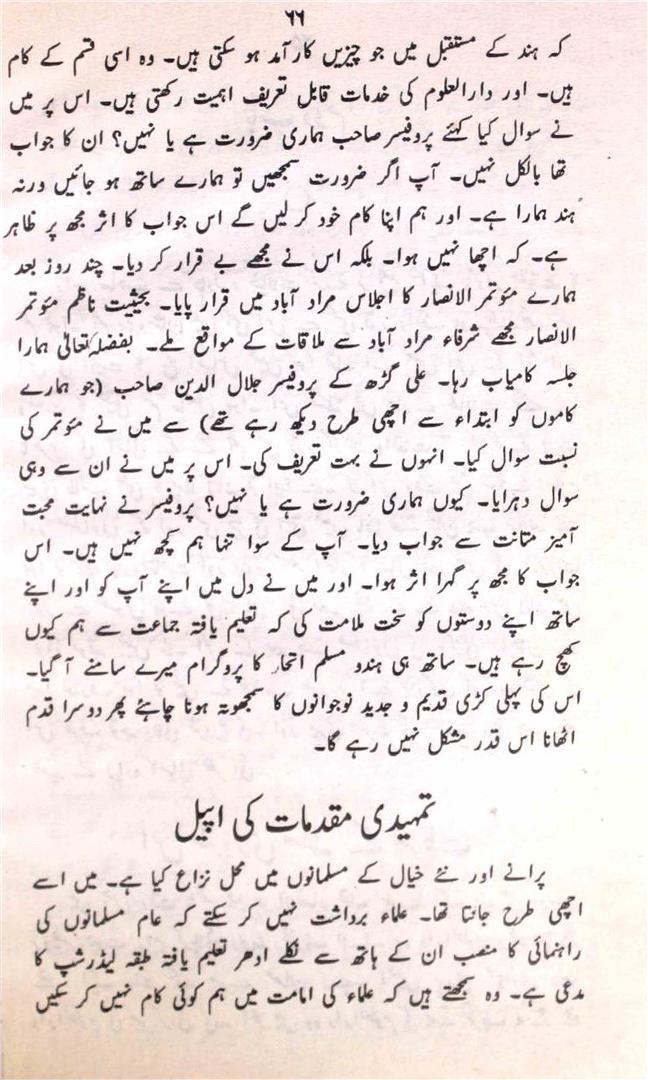 ۶۶
کہ ہند کے مستقبل میں جو چیزیں کار آمد ہو سکتی ہیں۔ وہ اسی قسم کے کام
ہیں۔ اور دارالعلوم کی خدمات قابل تعریف اہمیت رکھتی ہیں۔ اس پر میں
نے سوال کیا کہئے پروفیسر صاحب ہماری ضرورت ہے یا نہیں؟ ان کا جواب
تھا بالکل نہیں۔ آپ اگر ضرورت سمجھیں تو ہمارے ساتھ ہو جائیں ورنہ
ہند ہمارا ہے۔ اور ہم اپنا کام خود کر لیں گے اس جواب کا اثر مجھ پر ظاہر
ہے۔ کہ اچھا نہیں ہوا۔ بلکہ اس نے مجھے بے قرار کر دیا۔ چند روز بعد
ہمارے مئوتمر الانصار کا اجلاس مراد آباد میں قرار پایا۔ بحیثیت ناظم مئوتمر
الانصار مجھے شرفاء مراد آباد سے ملاقات کے مواقع ملے۔ بفضلہ تعالیٰ ہمارا
جلسہ کامیاب رہا۔ علی گڑھ کے پروفیسر جلال الدین صاحب (جو ہمارے
کاموں کو ابتداء سے اچھی طرح دیکھ رہے تھے) سے میں نے مئوتمر کی
نسبت سوال کیا۔ انہوں نے بہت تعریف کی۔ اس پر میں نے ان سے وہی
سوال دہرایا۔ کیوں ہماری ضرورت ہے یا نہیں؟ پروفیسر نے نہایت محبت
آمیز متانت سے جواب دیا۔ آپ کے سوا تنہا ہم کچھ نہیں ہیں۔ اس
جواب کا مجھ پر گہرا اثر ہوا۔ اور میں نے دل میں اپنے آپ کو اور اپنے
ساتھ اپنے دوستوں کو سخت ملامت کی کہ تعلیم یافتہ جماعت سے ہم کیوں
کھچ رہے ہیں۔ ساتھ ہی ہندو مسلم اتحاد کا پروگرام میرے سامنے آ گیا۔
اس کی پہلی کڑی قدیم و جدید نوجوانوں کا سمجھوتہ ہونا چاہئے پھر دوسرا قدم
اٹھانا اس قدر مشکل نہیں رہے گا۔
تمہیدی مقدمات کی اپیل
پرانے اور نئے خیال کے مسلمانوں میں محل نزاع کیا ہے۔ میں اسے
اچھی طرح جانتا تھا۔ علماء برداشت نہیں کر سکتے کہ عام مسلمانوں کی
راہنمائی کا منصب ان کے ہاتھ سے نکلے ادھر تعلیم یافتہ طبقہ لیڈرشپ کا
مدعی ہے۔ وہ سمجھتے ہیں کہ علماء کی امامت میں ہم کوئی کام نہیں کر سکیں